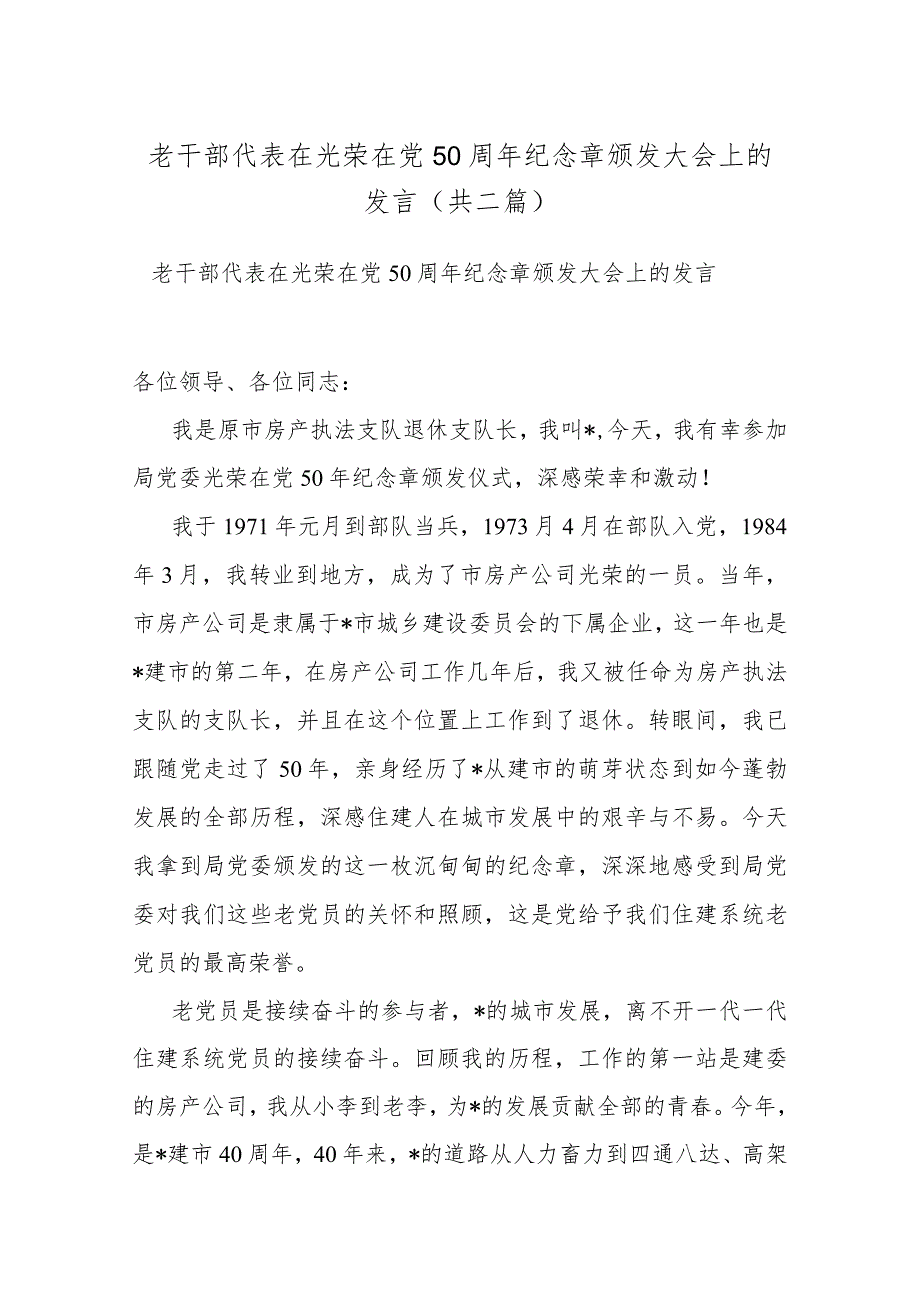 老干部代表在光荣在党50周年纪念章颁发大会上的
发言（共二篇）
老干部代表在光荣在党50周年纪念章颁发大会上的发言
各位领导、各位同志：
我是原市房产执法支队退休支队长，我叫*,今天，我有幸参加
局党委光荣在党50年纪念章颁发仪式，深感荣幸和激动！
我于1971年元月到部队当兵，1973月4月在部队入党，1984
年3月，我转业到地方，成为了市房产公司光荣的一员。当年，
市房产公司是隶属于*市城乡建设委员会的下属企业，这一年也是
*建市的第二年，在房产公司工作几年后，我又被任命为房产执法
支队的支队长，并且在这个位置上工作到了退休。转眼间，我已
跟随党走过了50年，亲身经历了*从建市的萌芽状态到如今蓬勃
发展的全部历程，深感住建人在城市发展中的艰辛与不易。今天
我拿到局党委颁发的这一枚沉甸甸的纪念章，深深地感受到局党
委对我们这些老党员的关怀和照顾，这是党给予我们住建系统老
党员的最高荣誉。
老党员是接续奋斗的参与者，*的城市发展，离不开一代一代
住建系统党员的接续奋斗。回顾我的历程，工作的第一站是建委
的房产公司，我从小李到老李，为*的发展贡献全部的青春。今年，
是*建市40周年，40年来，*的道路从人力畜力到四通八达、高架